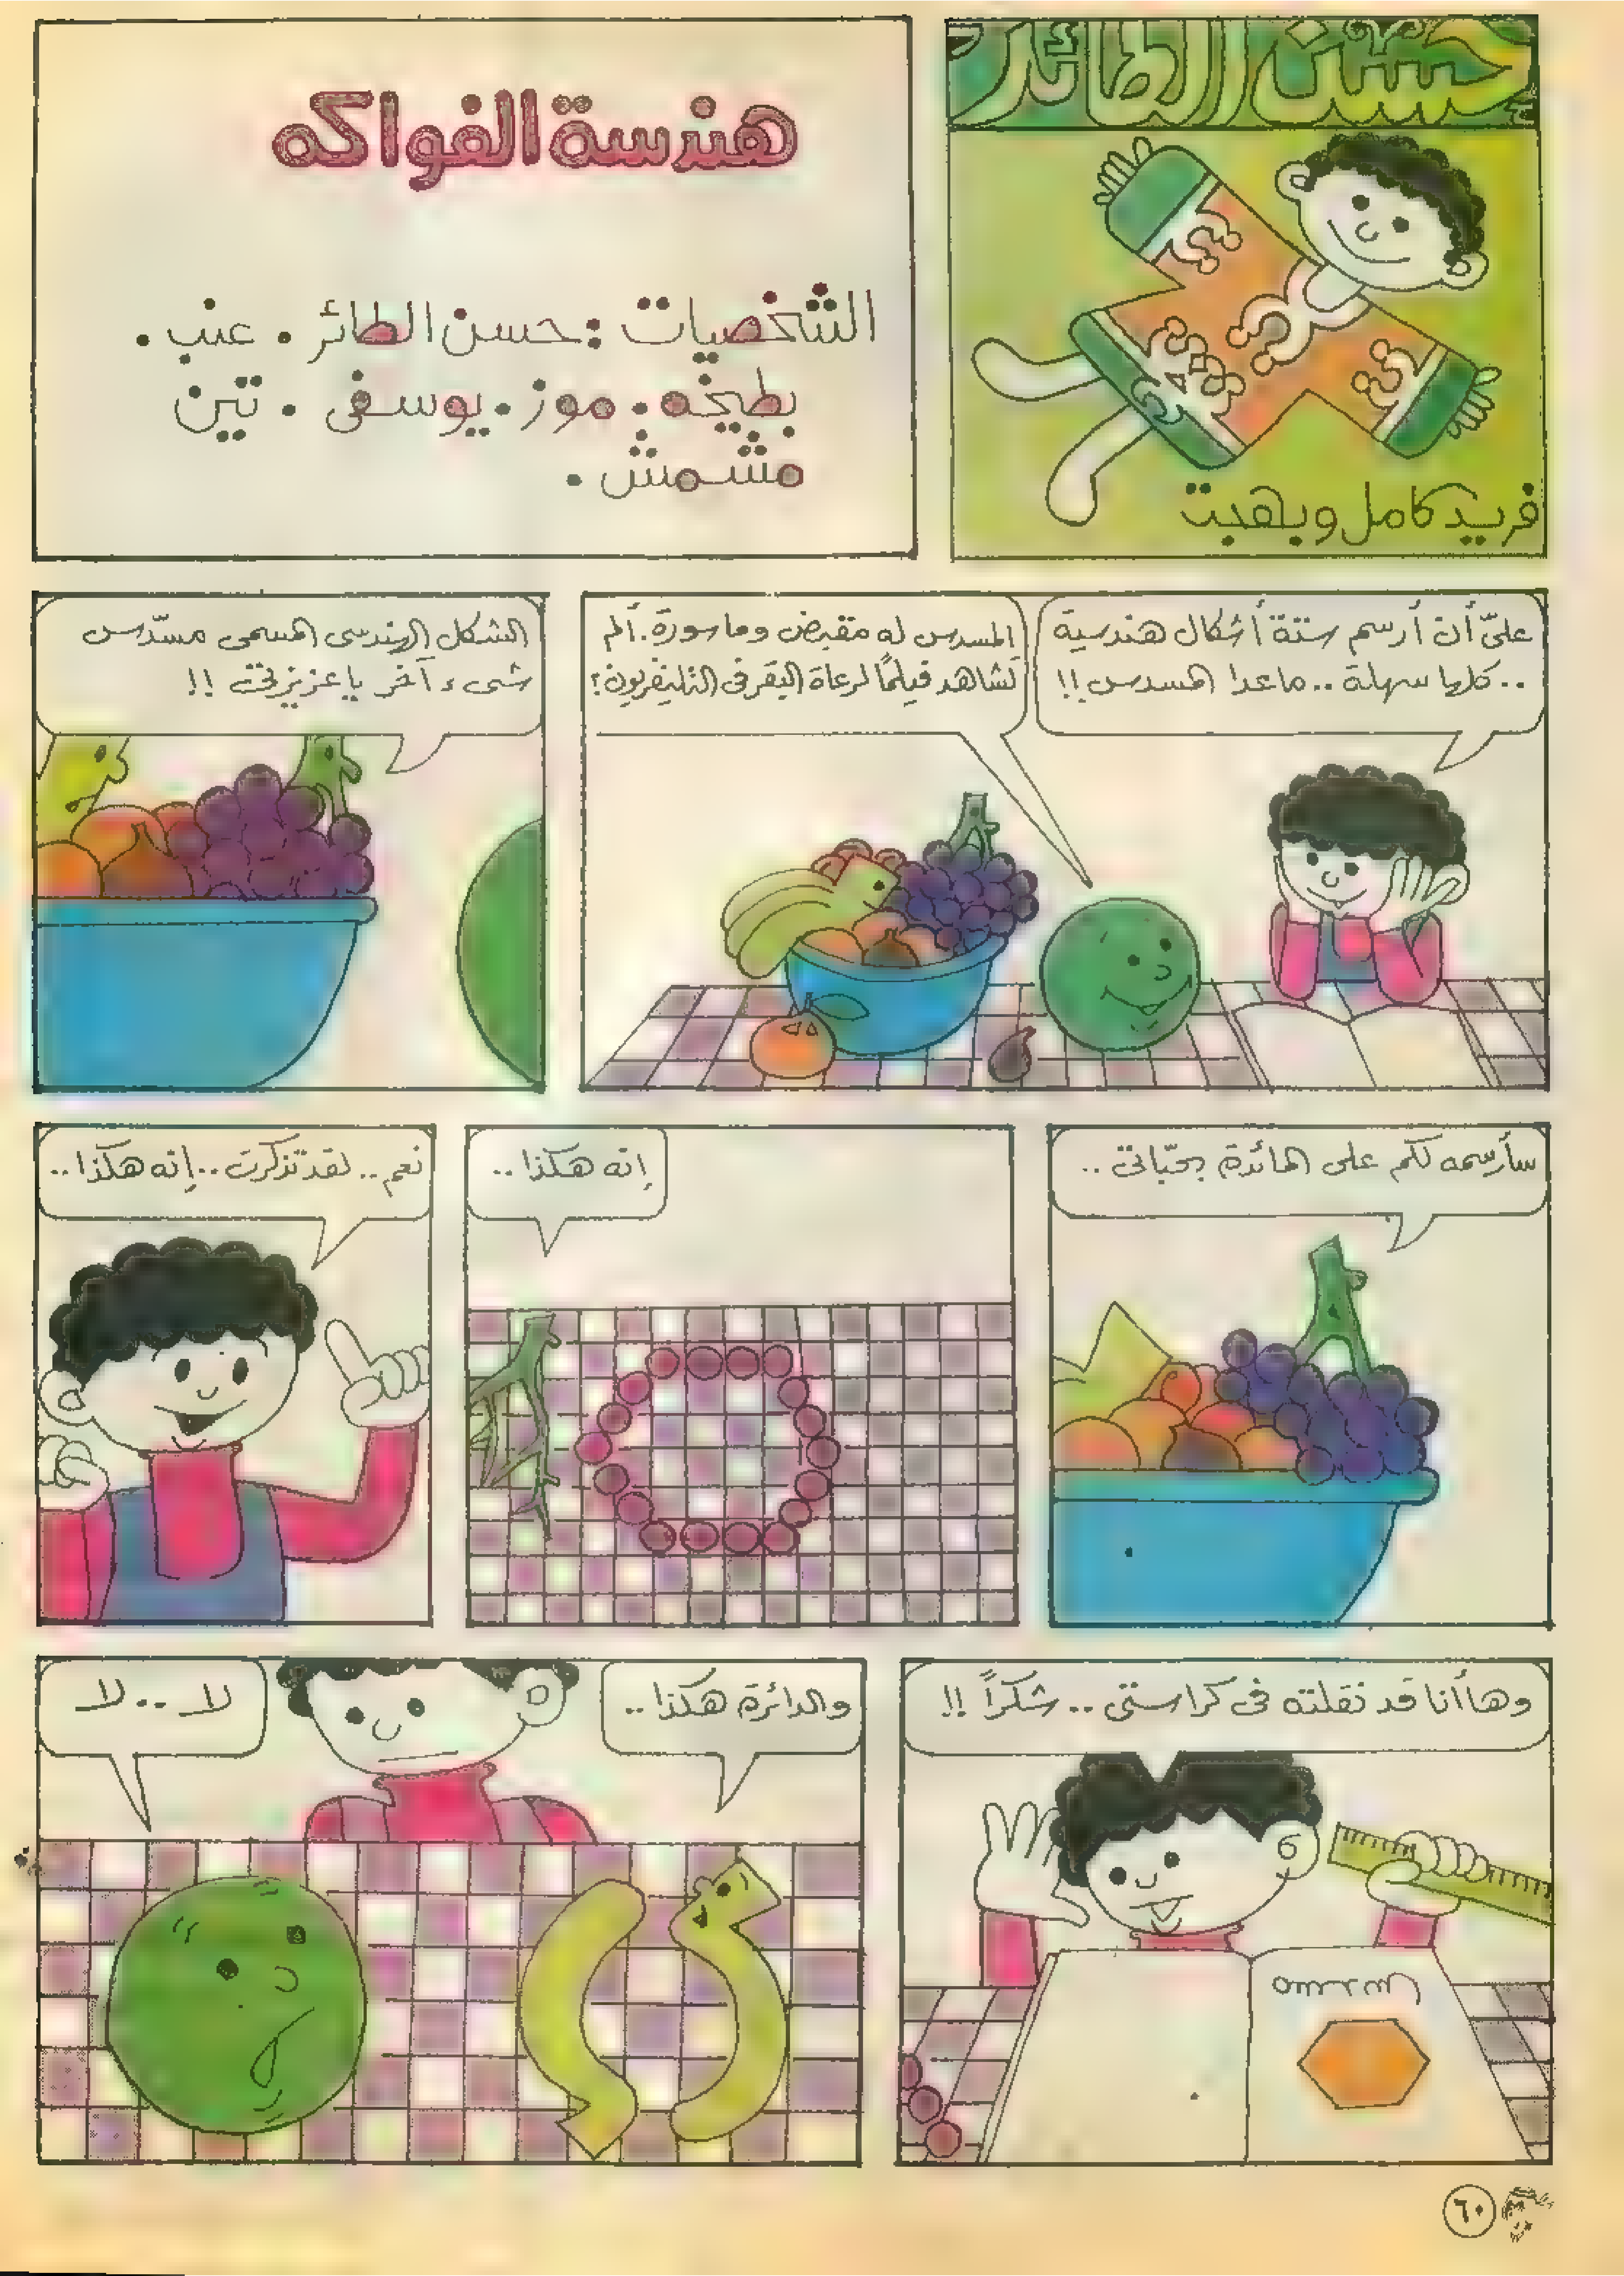 حسن الطائر
فريد كامل وبهجت
هندسة الفواكه
الشخصيات : حسن الطائر . عنب .
بطيخه . موز . يوسفى . تين
مشمش .
علىّ أن أرسم ستة أشكال هندسية
.. كلها سهلة .. ماعدا المسدس !!
المسدس له مقبض وماسورة . ألم
تشاهد فيلمًا لرعاة البقر فى التليفزيون ؟
الشكل الهندسى المسمى مسدّس
شىء آخر يا عزيزتى !!
سأرسمه لكم على المائدة بحبّاتى ..
إنه هكذا ..
نعم .. لقد تذكرت .. إنه هكذا ..
وها أنا قد نقلته فى كراستى .. شكراً !!
مسدس
والدائرة هكذا ..
لا .. لا
٦٠